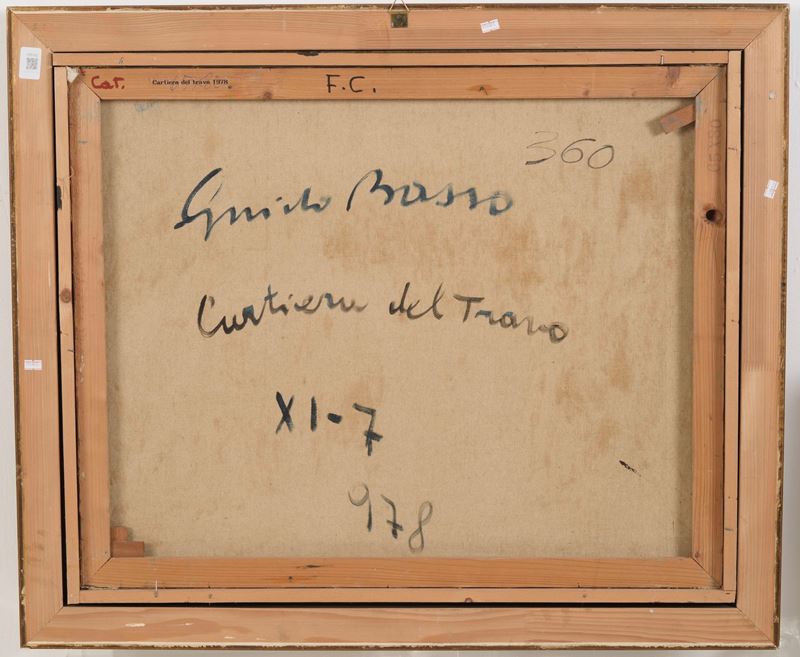 Car. Cartiera del travo 1978 F.C.
360
Guido Basso
Cartiera del Travo
XI-7
978